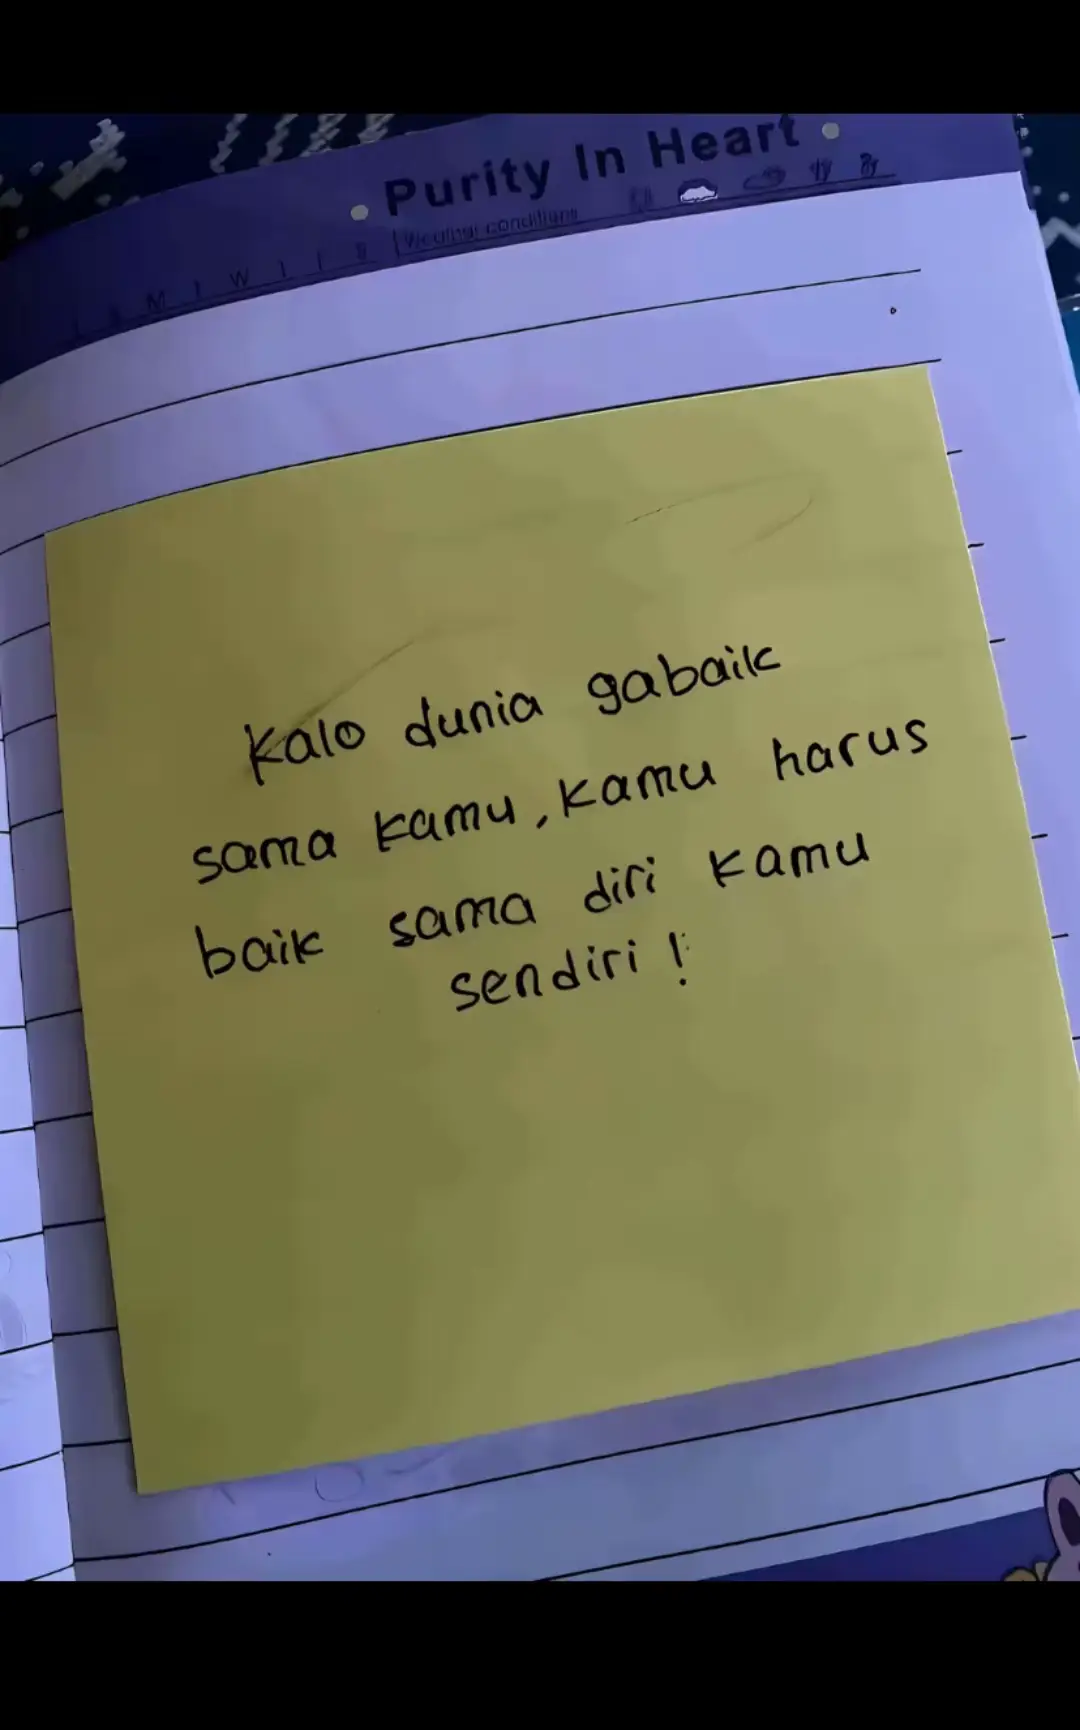 Purity In Heart
Weather conditions
Kalo dunia gabaik
sama kamu, kamu harus
baik sama diri kamu
sendiri !